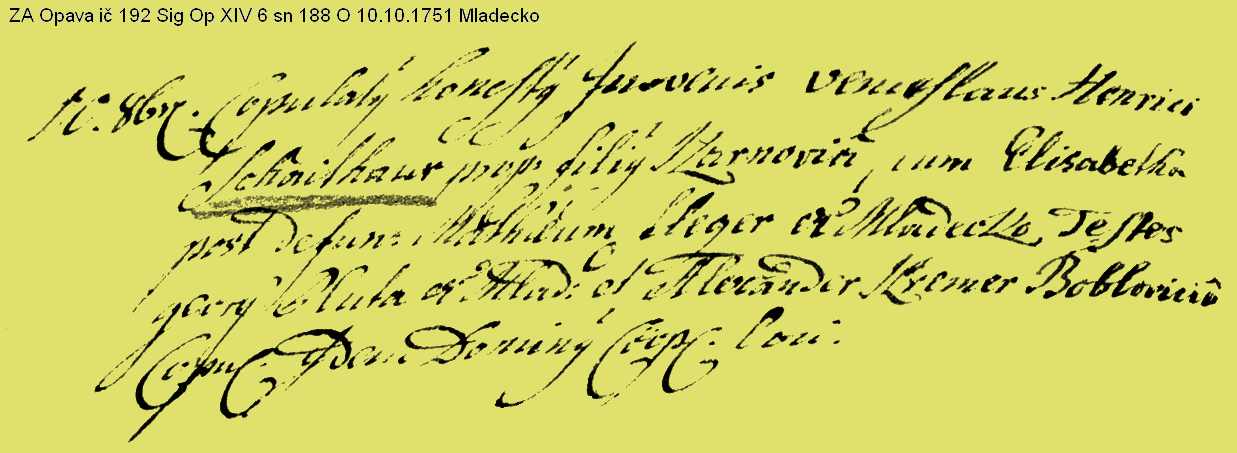 ZA Opava ič 192 Sig Op XIV 6 sn 188 O 10.10.1751 Mladecko
10. 8br. Copulatÿ honestÿ Juvenis Venceslaus Henrici
Schailhaur prop. filiÿ Karnoviâ, cum Elisabetha
post defun: Mathium Steger ex Mladecko, Testes
georgÿ Kluta ex Mlad: et Alexander Kremer Boblovicio
Copu. Idem Dominÿ Coop. Loci.